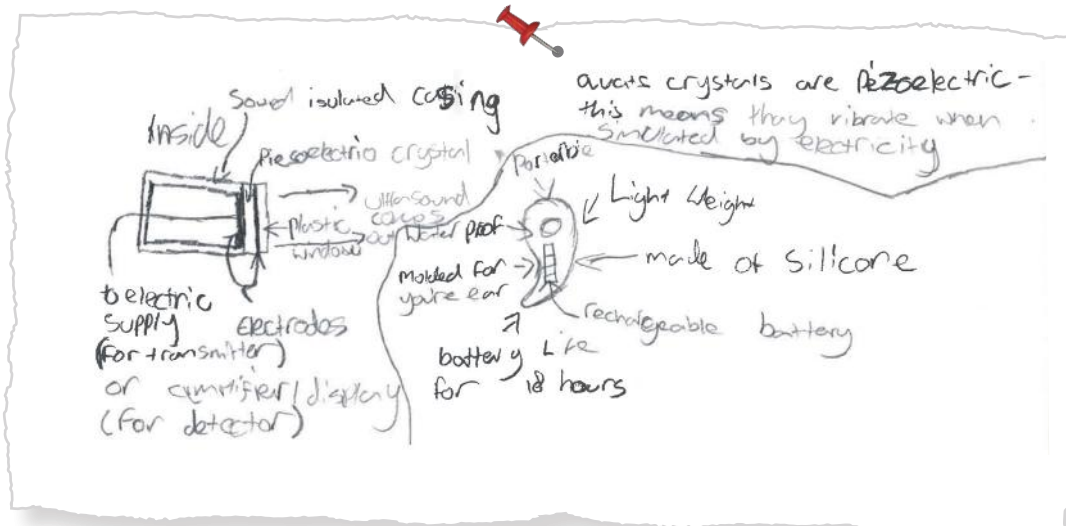 Sound isolated casing
Inside
Piezoelectric crystal
ultrasound
comes
out
plastic
window
to electric
supply
(for transmitter)
or amplifier/display
(for detector)
Electrodes
quarts crystals are Piezoelectric -
this means thay vibrate when
simulated by electricity
Portable
Light Weight
water proof
made of Silicone
molded for
you're ear
rechargeable battery
battery Life
for 18 hours